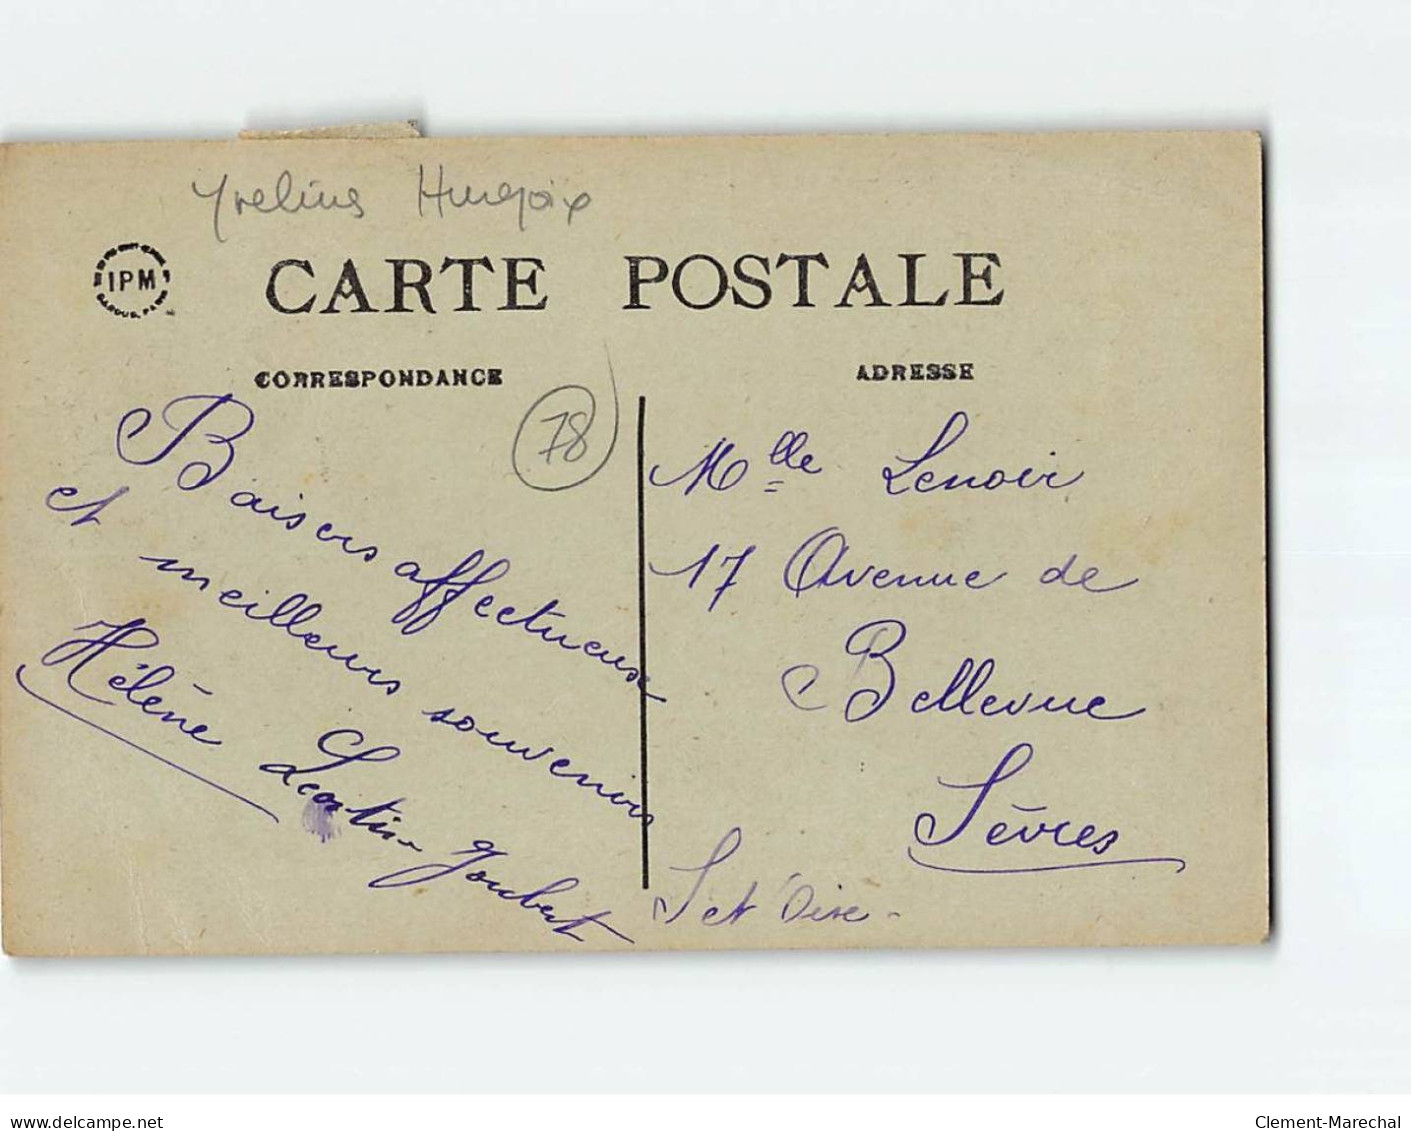 Yvelines Hurepoix
IPM
CARTE POSTALE
CORRESPONDANCE
ADRESSE
78
Baisers affectueux
et meilleurs souvenirs
Hélène Joubert
Mlle Lenoir
17 Avenue de
Bellevue
Sèvres
S et Oise -
www.delcampe.net
Clement-Marechal